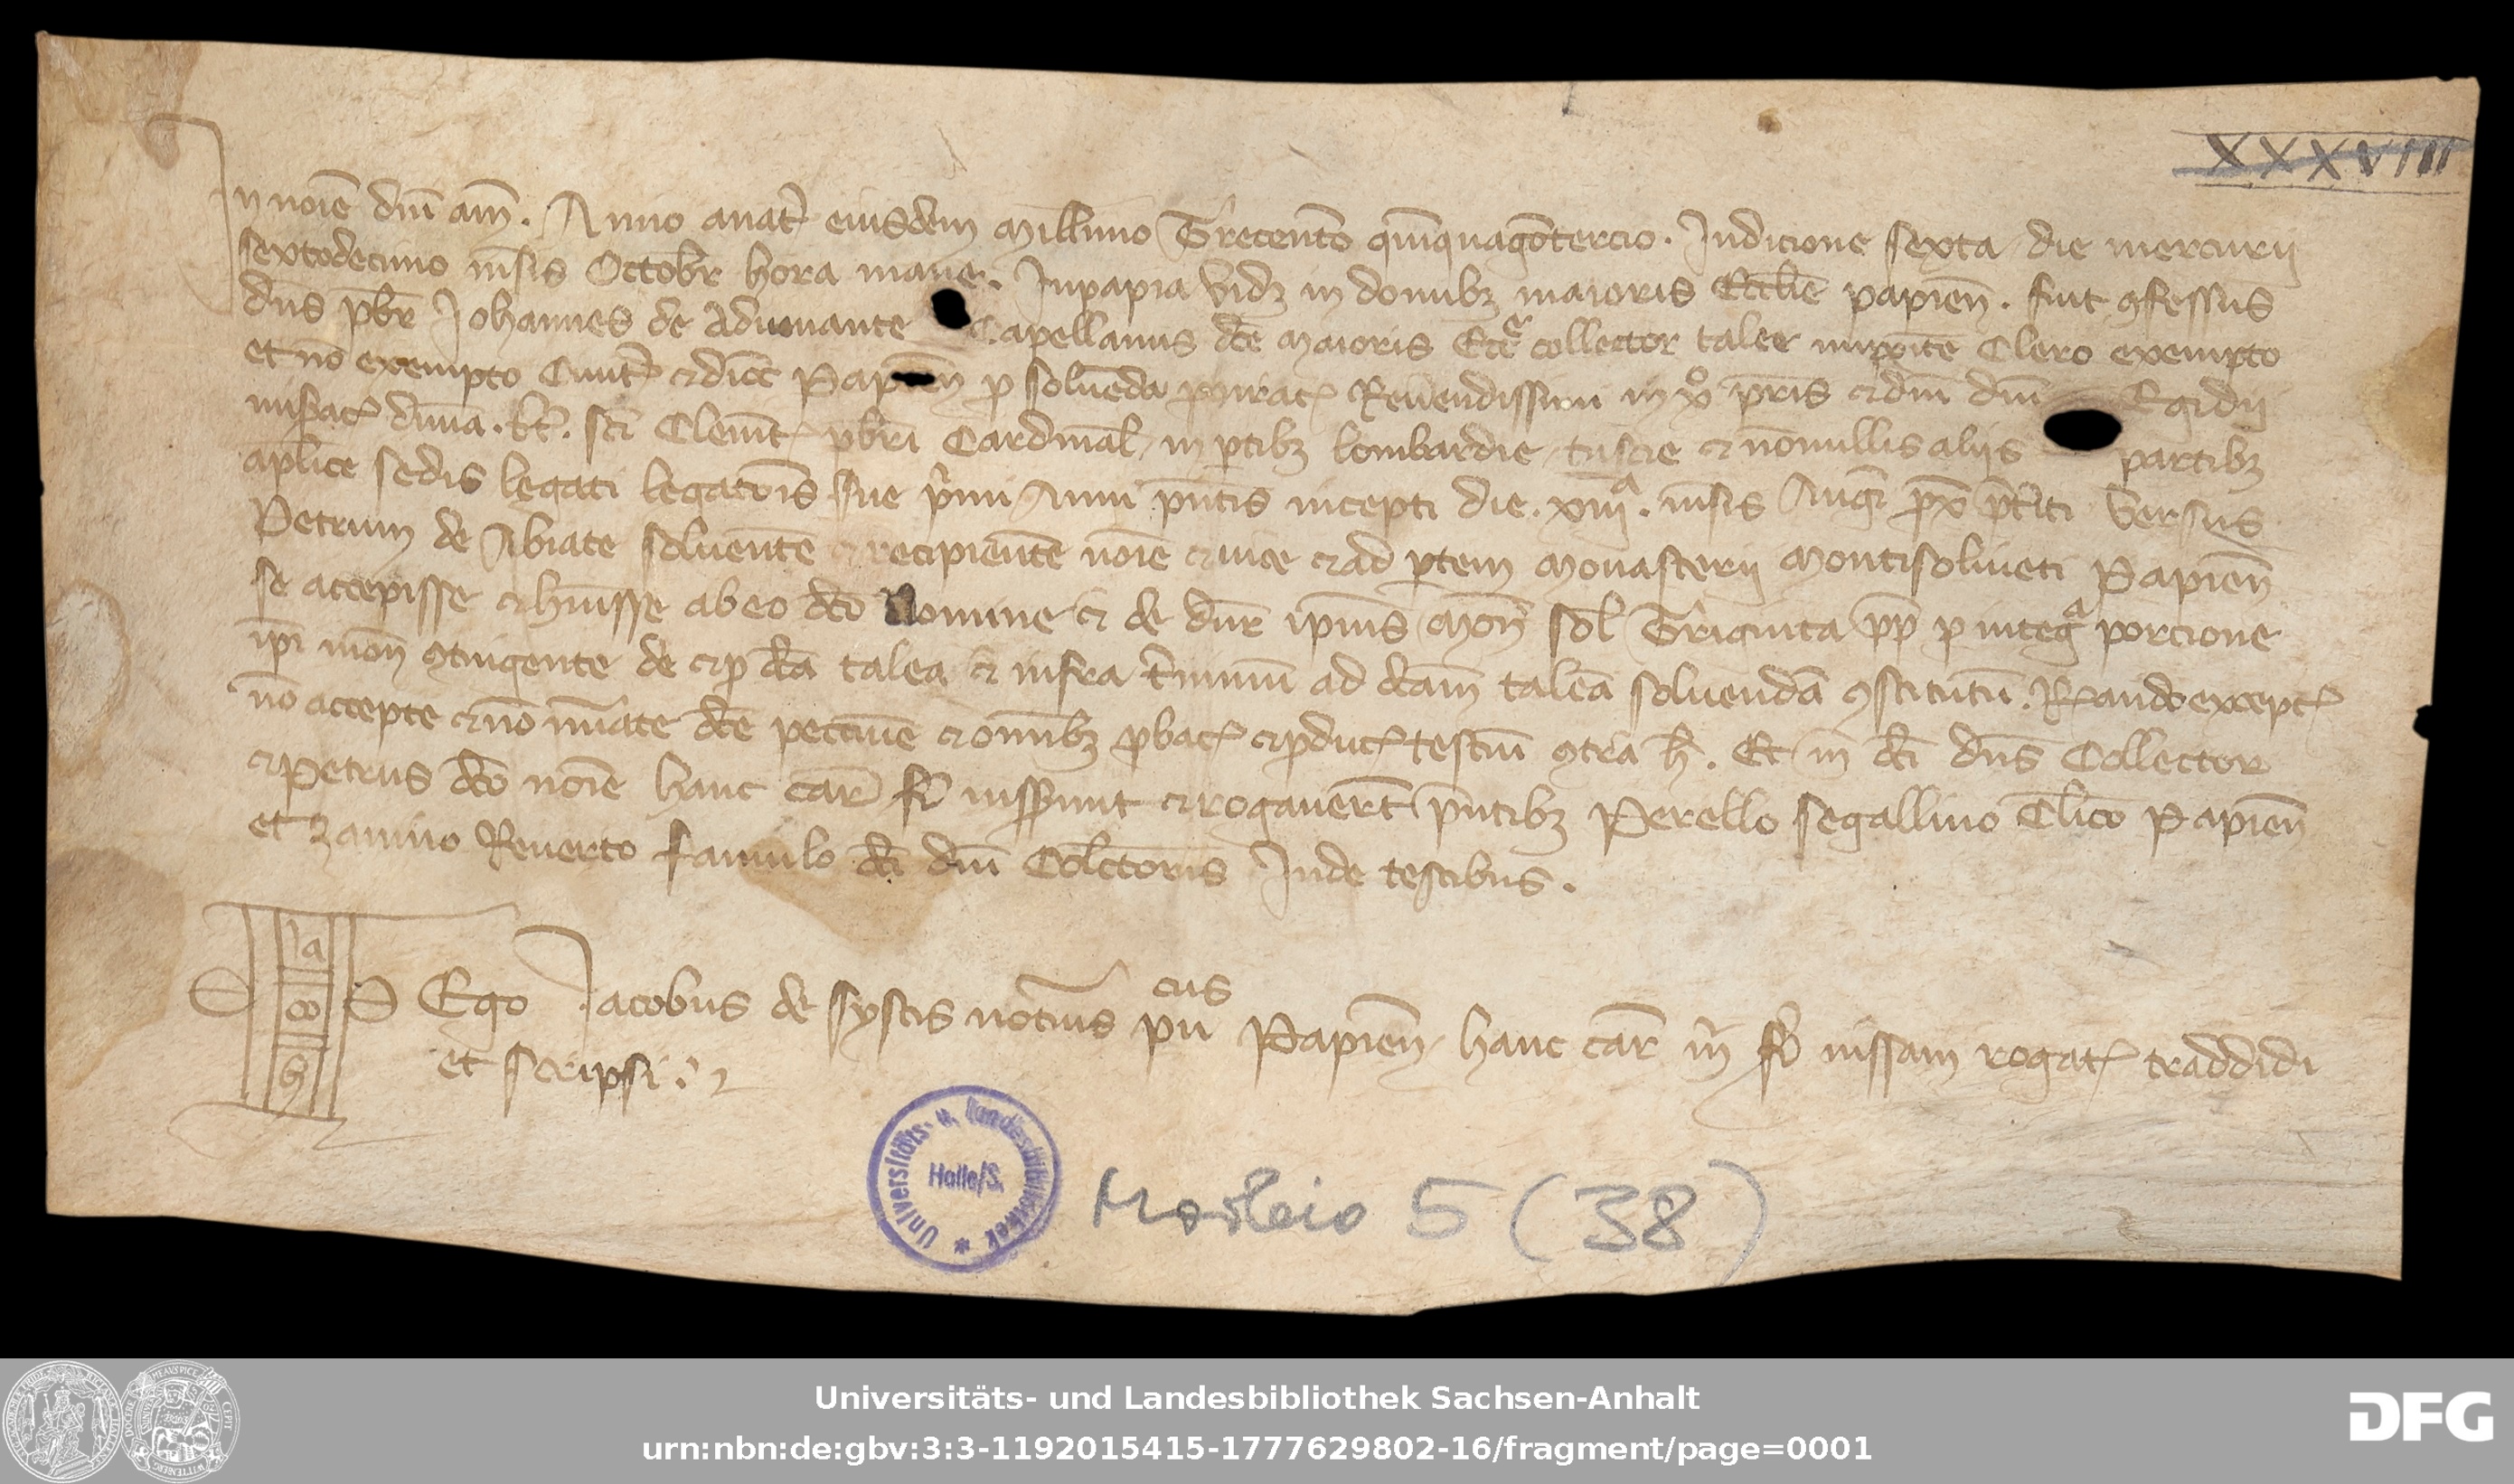 XXXVIII
In noīe dn̄i am̄. Anno a natī eiusdem Millimo Trecent̄o qūinquagōtercio. Indicione sexta die mercurij
sextodecimo m̄sis Octobr̄ hora mane. In papia vidꝫ in domibꝫ maioris Eccl̄ie papien̄. fuit ꝯfessus
dn̄s p̄br̄ Johannes de Capellanus dc̄e Maioris collector talee Clero exempto
et nō exempto Ciuit̄ ⁊ dioc̄ Papien̄ ꝓ soluēda Reuēendissimi in xo p̄ris ⁊ dn̄i dn̄i Egidij
dīuīa . tt̄. sc̄i Clemēt p̄bri Cardīnal in ꝑtibꝫ lombardie tuscie ⁊ nōnullis alijs partibꝫ
ap̄lice sedis legati legatōis sue p̄rimi Anni p̄ntis incepti die . xiijᵃ . m̄sis Augī p̄x p̄t̄iti versus
Petrum de Abiate soluentē ⁊ recipientē noīe ⁊ uice ⁊ ad ꝑtem Monasterij Montisoliueti Papien̄
se accepisse ⁊ hūisse ab eo dc̄o Nomine ⁊ de dn̄r ipīus Mon̄ sol̄ Triginta pp̄ ꝓ integᵃ porcione
ip̄i mon̄ ꝯtingente de ⁊ ꝓ dc̄a talea ⁊ infra t̄minū ad dc̄am taleā soluendā ꝯstitutū. R̄ando except̄
nō accepte ⁊ nō nūate dc̄e peccunīe ⁊ om̄ibꝫ ꝓbat̄ ⁊ ꝓduct̄ testiū ꝯtra h̄. Et in̄ dc̄i dn̄s Collector
⁊ Petrus dc̄o noīe hanc car̄ fi iusserunt ⁊ rogauer̄t p̄ntibꝫ Perello segallino Cl̄ico Papien̄
et Zanino Reuerto famulo dc̄i dn̄i Col̄ctoris Inde testibus .
Ia
co
b9
Ego Jacobus de systis not̄ius pu͞cus Papien̄ hanc car̄ m̄ fi iussam rogat̄ traddidi
et scripsi .
Universitäts- u. Landesbibliothek * Halle/S.
Morbio 5 (38)
Universitäts- und Landesbibliothek Sachsen-Anhalt
urn:nbn:de:gbv:3:3-1192015415-1777629802-16/fragment/page=0001
DFG